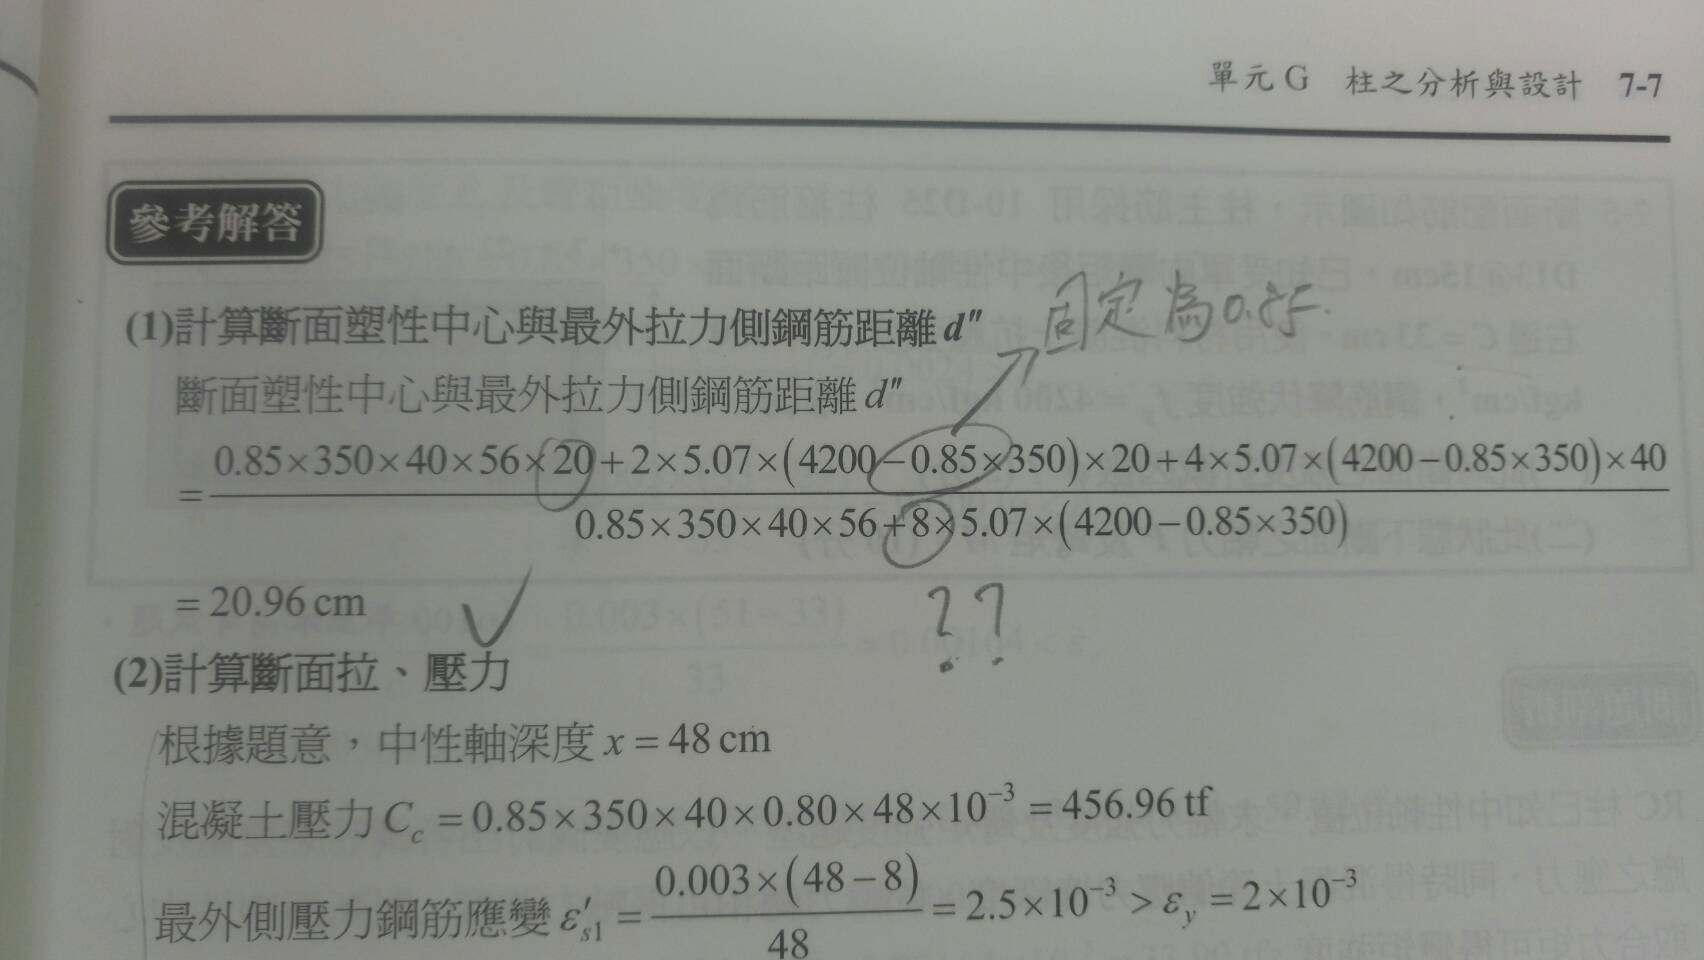 單元 G 柱之分析與設計 7-7
參考解答
固定為0.85.
(1)計算斷面塑性中心與最外拉力側鋼筋距離 d"
斷面塑性中心與最外拉力側鋼筋距離 d"
= (0.85×350×40×56×20+2×5.07×(4200−0.85×350)×20+4×5.07×(4200−0.85×350)×40) / (0.85×350×40×56+8×5.07×(4200−0.85×350))
= 20.96 cm
??
(2)計算斷面拉、壓力
根據題意，中性軸深度 x = 48 cm
混凝土壓力 C_c = 0.85×350×40×0.80×48×10⁻³ = 456.96 tf
最外側壓力鋼筋應變 ε′_s1 = 0.003×(48−8) / 48 = 2.5×10⁻³ > ε_y = 2×10⁻³